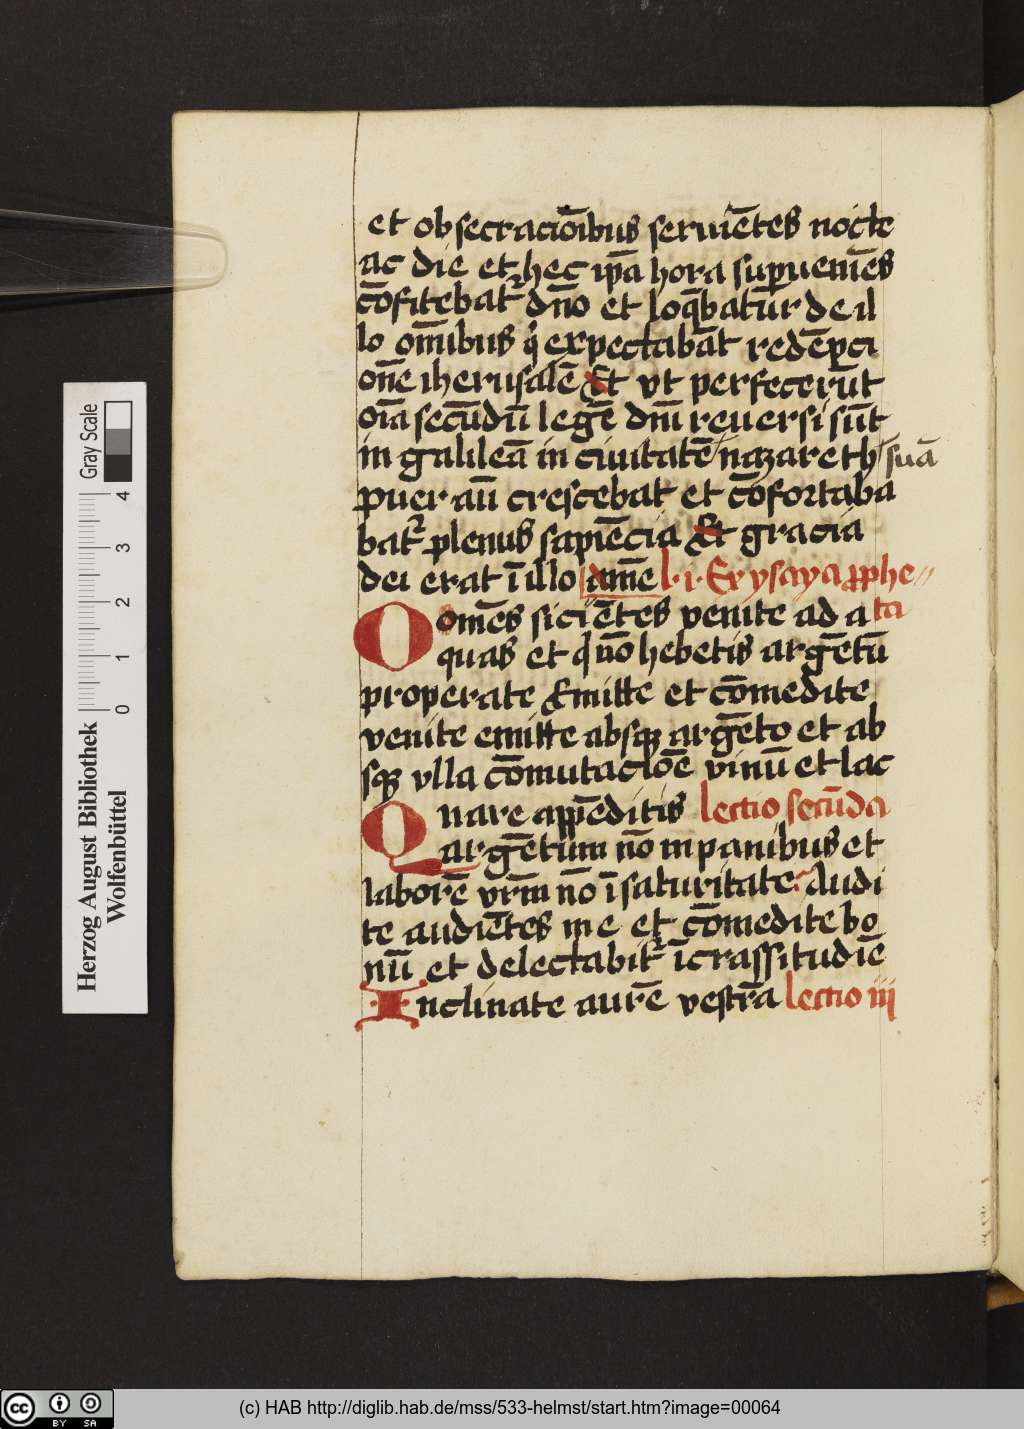 et obsecracōibus seruiētes nocte
ac die et hec ip̄a hora supueniēs
cōfitebatr dn̄o et loq̄batur de il
lo om̄ibus q̇ expectabāt redēpci
onē iherusalē Et vt perfecerūt
oīa secūdū legē dnī reuersi sūt
in galileā in ciuitatē nazareth suā
puer aū crescebat et cōfortaba
batr plenus sapiēcia Et gracia
dei erat ī illo amē l · i · Ex ysaya pphe
Oomēs siciētes venite ad a ta
quas et q̄ nō hebetis argētū
properate Emitte et cōmedite
venite emitte absqꝫ argēto et ab
sqꝫ vlla cōmutaciōe vinū et lac
Quare appēditis lectio secūda
argētum nō in panibus et
laborē vrm̄ nō ī saturitate Audi
te audiētes me et cōmedite bo
nū et delectabitr īcrassitudīē
Inclinate aurē vestrā lectio iii
Herzog August Bibliothek
Wolfenbüttel
Gray Scale
0 1 2 3 4
cc BY SA
(c) HAB http://diglib.hab.de/mss/533-helmst/start.htm?image=00064